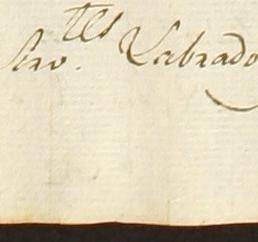 tes
Serv. Labrado